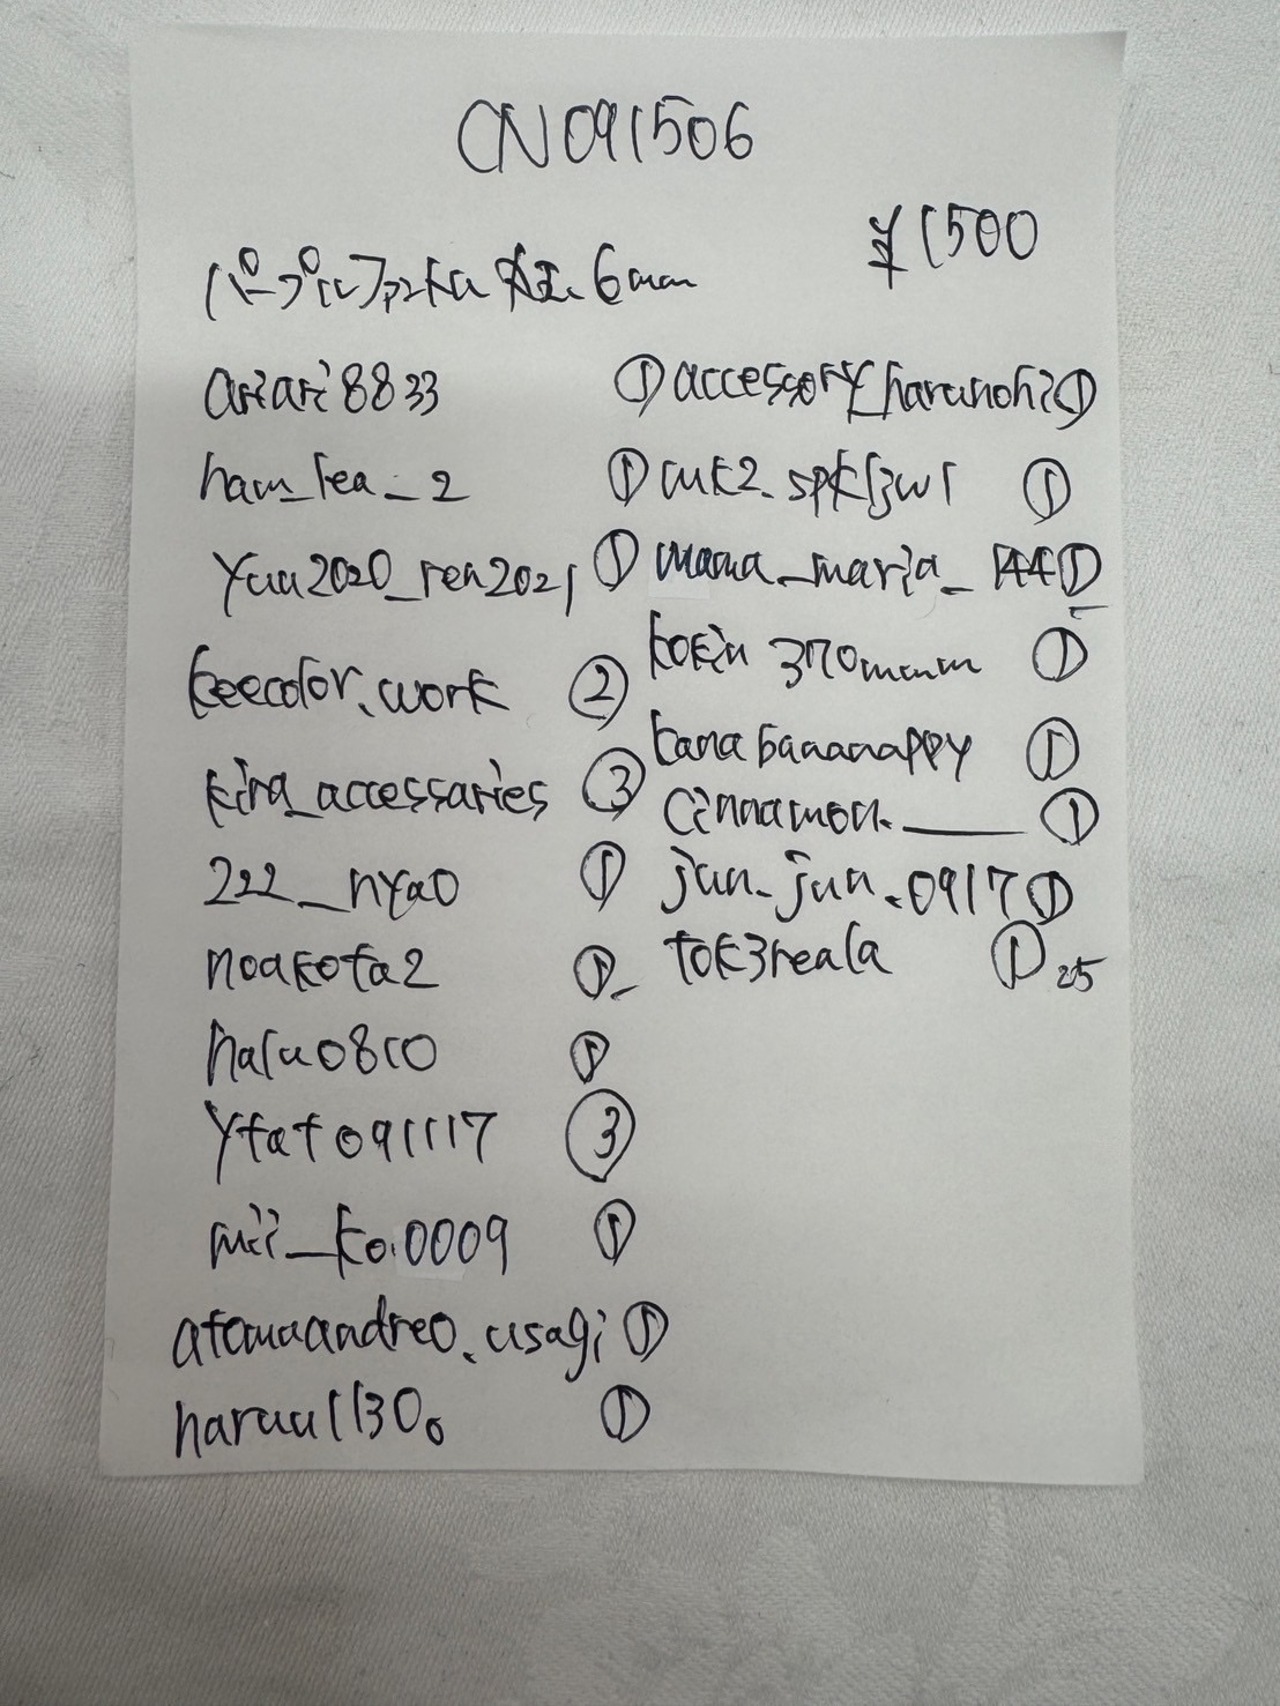 CN091506
¥1500
パープルファントム 丸玉 6mm
ariari8833 ①
ham_lea_2 ①
yuu2020_ren2021 ①
keecolor.work ②
kira_accessaries ③
222_nyao ①
noakota2 ①
halu0810 ①
ytat091117 ③
mii_ko.0009 ①
atomuandreo.usagi ①
haruu1130 ①
accessory_harunohi ①
mk2.spkl3w1 ①
mama_maria_144 ①
kokin370mmm ①
kanabananappy ①
cinnamon.____ ①
jun_jun.0917 ①
tok3reala ① 25